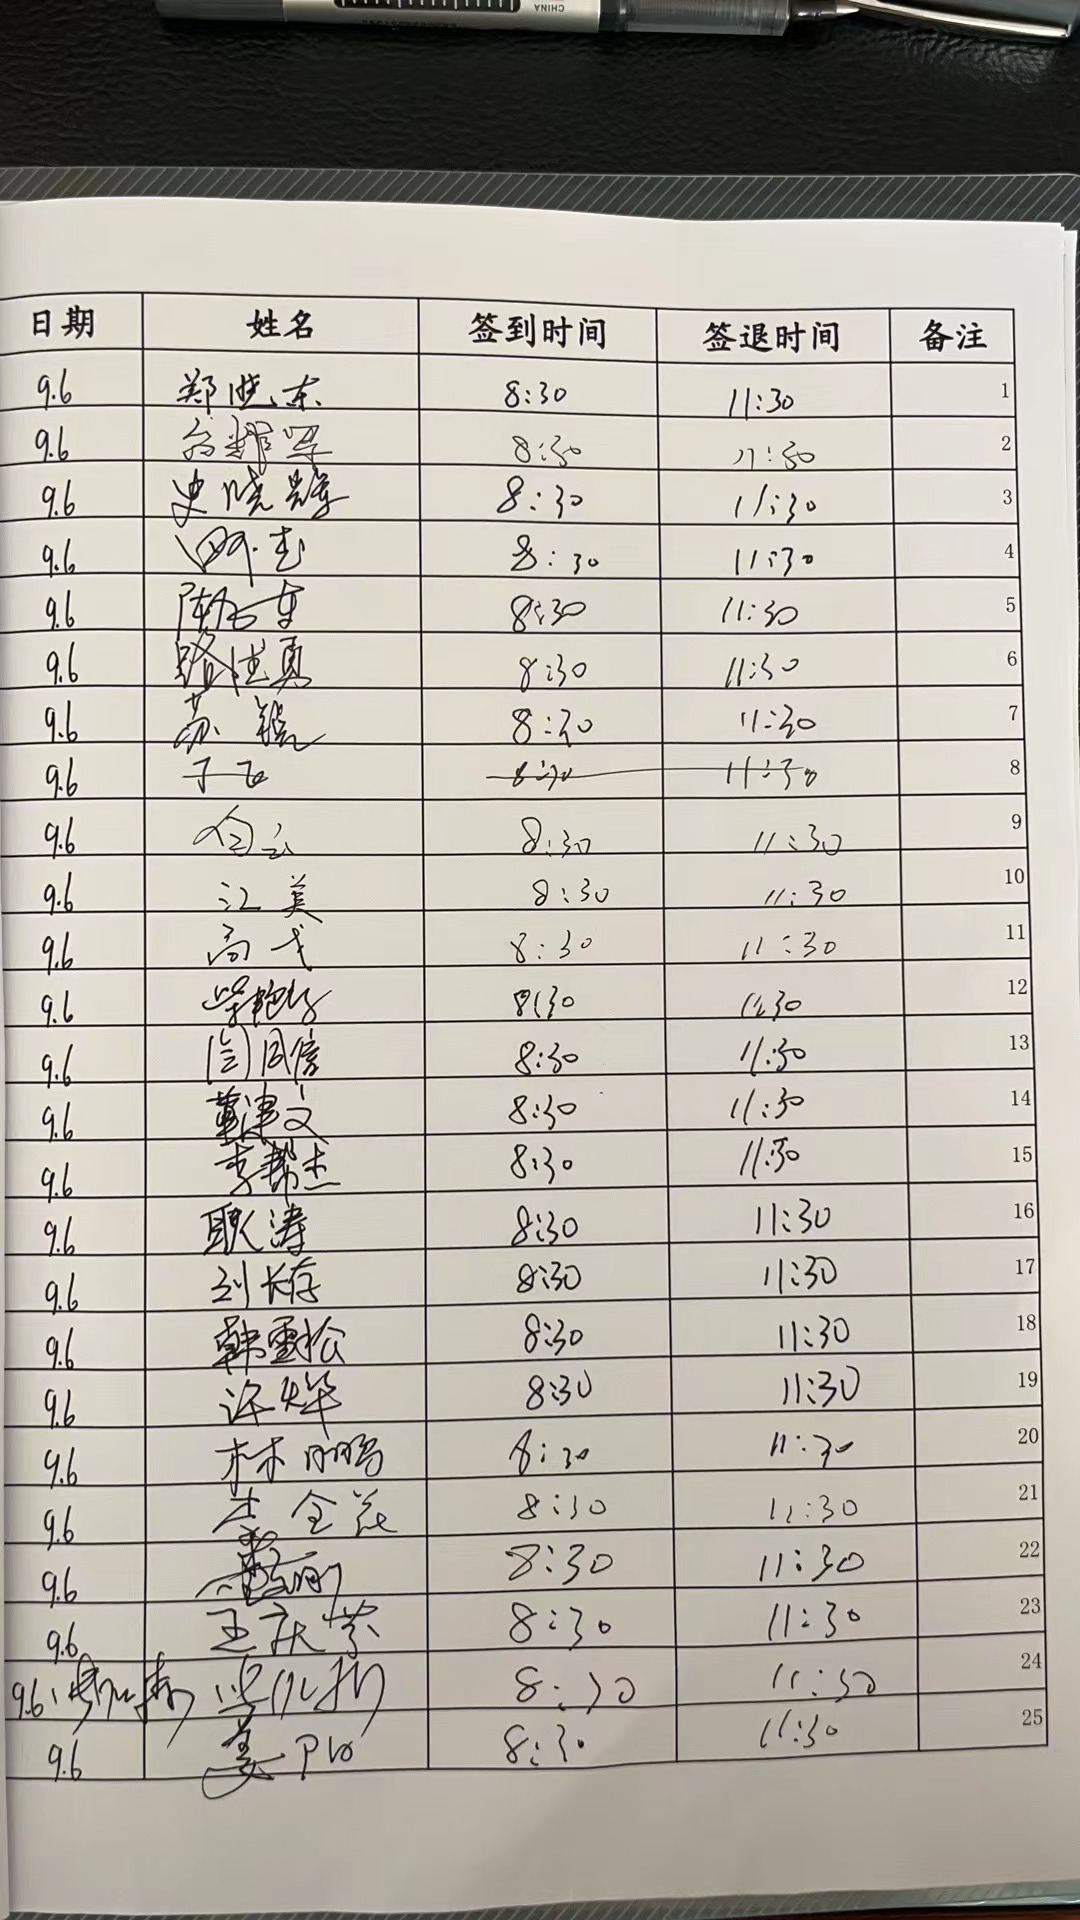 CHINA
日期 姓名 签到时间 签退时间 备注
9.6 郑晓东 8:30 11:30 1
9.6 8:30 11:30 2
9.6 史晓辉 8:30 11:30 3
9.6 8:30 11:30 4
9.6 8:30 11:30 5
9.6 路佳真 8:30 11:30 6
9.6 苏 8:30 11:30 7
9.6 于飞 8:30 11:30 8
9.6 白云 8:30 11:30 9
9.6 江美 8:30 11:30 10
9.6 高戈 8:30 11:30 11
9.6 柴艳 8:30 11:30 12
9.6 闫国信 8:30 11:30 13
9.6 董建文 8:30 11:30 14
9.6 李邦杰 8:30 11:30 15
9.6 耿涛 8:30 11:30 16
9.6 刘长存 8:30 11:30 17
9.6 韩雪松 8:30 11:30 18
9.6 许烨 8:30 11:30 19
9.6 林鹏 8:30 11:30 20
9.6 8:30 11:30 21
9.6 8:30 11:30 22
9.6 王庆 8:30 11:30 23
9.6 8:30 11:30 24
9.6 姜 8:30 11:30 25